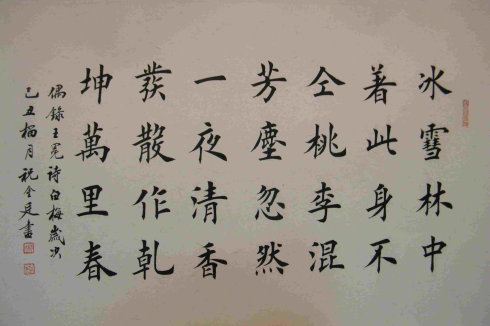 冰雪林中
著此身不
仝桃李混
芳塵忽然
一夜清香
發散作乾
坤萬里春
偶錄王冕詩白梅歲次
己丑月祝金書